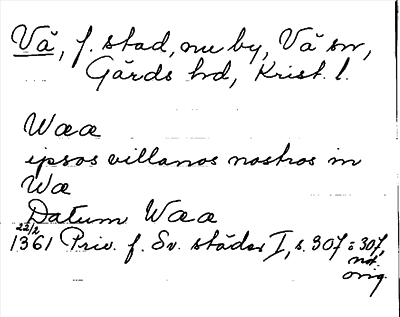 Vä, f. stad, nu by, Vä sn,
Gärds hd, Krist. l.
Wæa
ipsos villanos nostros in
Wæ
Datum Wæa
22/2
1361 Priv. f. Sv. städer I, s. 307 o 307,
not.
orig.